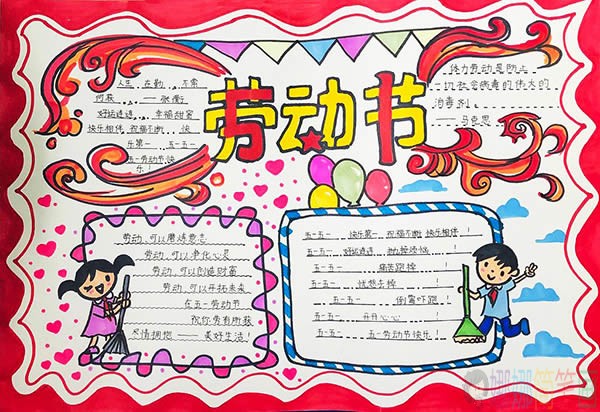 劳动节
人生在勤,不索
何获。——张衡
好运连连,幸福甜蜜
快乐相伴,祝福不断 快
乐第一,五一五一
五一劳动节快
乐!
体力劳动是防止
一切社会病毒的伟大的
消毒剂。
——马克思
劳动,可以磨炼意志
劳动,可以净化心灵
劳动,可以创造财富
劳动,可以开拓未来
在五一劳动节
祝你劳有所获
尽情拥抱——美好生活!
五一五一 快乐第一 祝福不断 快乐相伴!
五一五一 好运连连 抛掉烦恼!
五一五一 痛苦跑掉!
五一五一 忧愁去掉!
五一五一 倒霉吓跑!
五一五一 开开心心!
五一五一 五一劳动节快乐!
娜娜